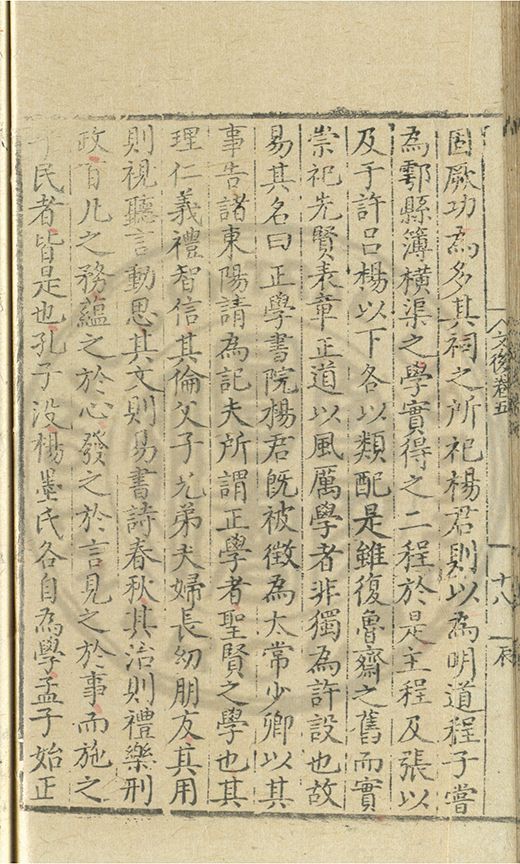 固厥功為多其祠之所祀楊君則以為明道程子嘗
為鄠縣簿橫渠之學實得之二程於是主程及張以
及于許呂楊以下各以類配是雖復魯齋之舊而實
崇祀先賢表章正道以風厲學者非獨為許設也故
易其名曰正學書院楊君既被徵為太常少卿以其
事告諸東陽請為記夫所謂正學者聖賢之學也其
理仁義禮智信其倫父子兄弟夫婦長幼朋友其用
則視聽言動思其文則易書詩春秋其治則禮樂刑
政百凡之務蘊之於心發之於言見之於事而施之
于民者皆是也孔子没楊墨氏各自為學孟子始正
文後卷五
十八
辰